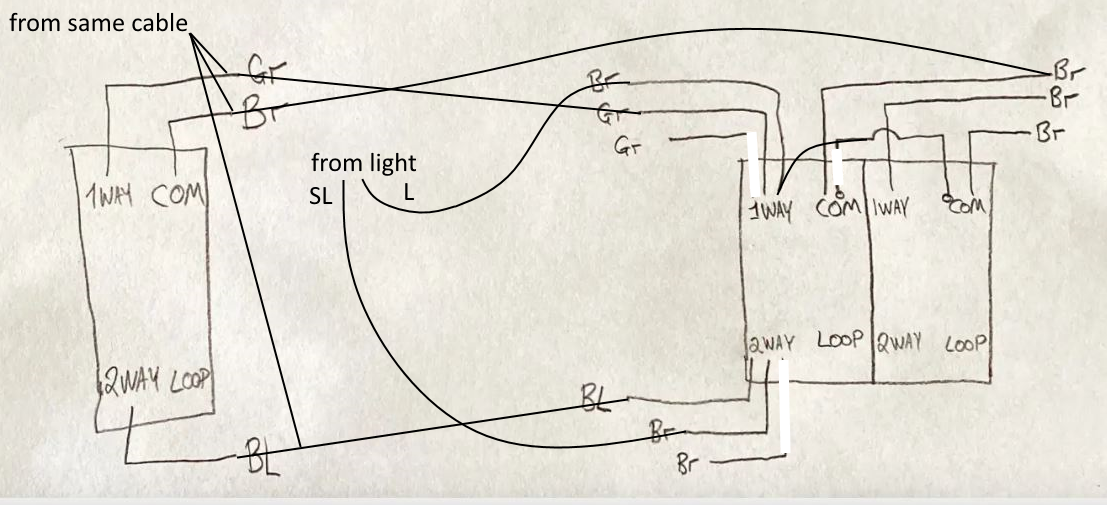 from same cable
Gr
Br
from light
SL
L
1WAY COM
2WAY LOOP
BL
Br
Gr
Gr
Br
Br
Br
1WAY COM 1WAY COM
2WAY LOOP 2WAY LOOP
BL
Br
Br